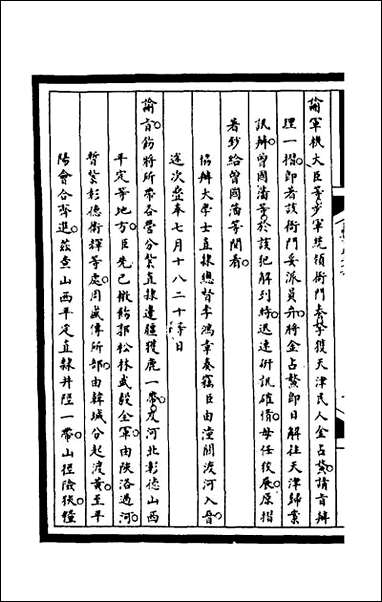 諭軍機大臣等步軍統領衙門奏拏獲天津民人金占鰲請旨辦
理一摺即著該衙門妥派員弁將金占鰲即日解往天津歸案
訊辦曾國藩等於該犯解到時迅速研訊確情毋任狡展原摺
著鈔給曾國藩等閱看
協辦大學士直隸總督李鴻章奏竊臣由潼關渡河入晉
遞次疊奉七月十八二十等日
諭旨飭將所帶各營分紮直隸邊疆獲鹿一帶及河北彰德山西
平定等地方臣先已檄飭郭松林武毅全軍由陝洛過河
暫紮彰德衛輝等處周盛傳所部由韓城分起渡黃至平
陽會合齊進茲查山西平定直隸井陘一帶山徑險狹犝